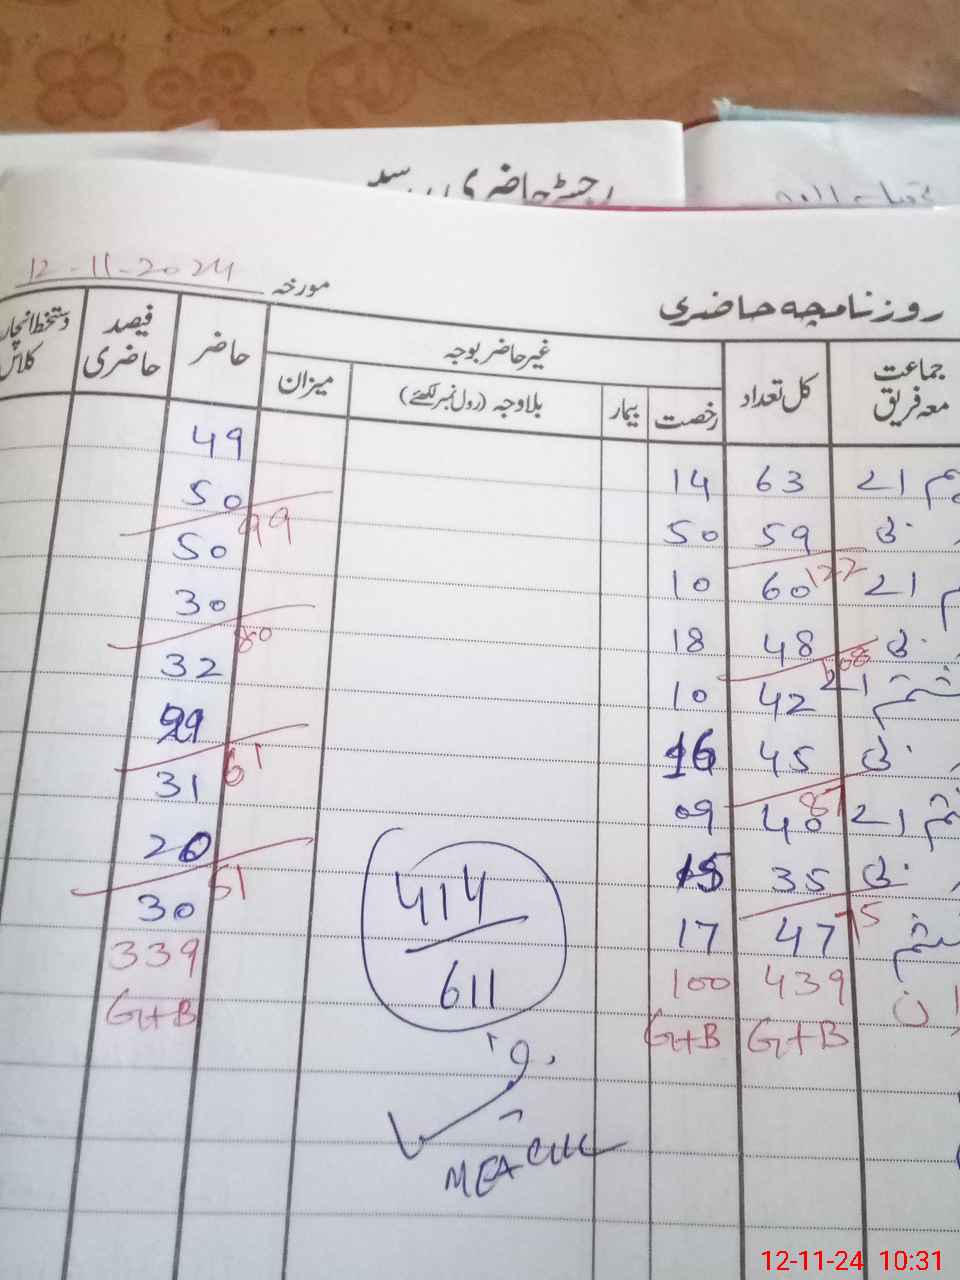 رجسٹر حاضری
12-11-2024 مورخہ
روزنامچہ حاضری
جماعت معہ فریق کل تعداد غیر حاضر بوجہ حاضر فیصد حاضری دستخط انچارج کلاس
رخصت بیمار بلاوجہ (رول نمبر لکھئے) میزان
اے 63 14 49
بی 59 50 50
122 99
اے 60 10 50
بی 48 18 30
108 80
اے 42 10 32
بی 45 16 29
87 61
اے 40 09 31
بی 35 15 20
75 51
47 17 30
439 100 339
G+B G+B G+B
414
611
MEA
12-11-24 10:31